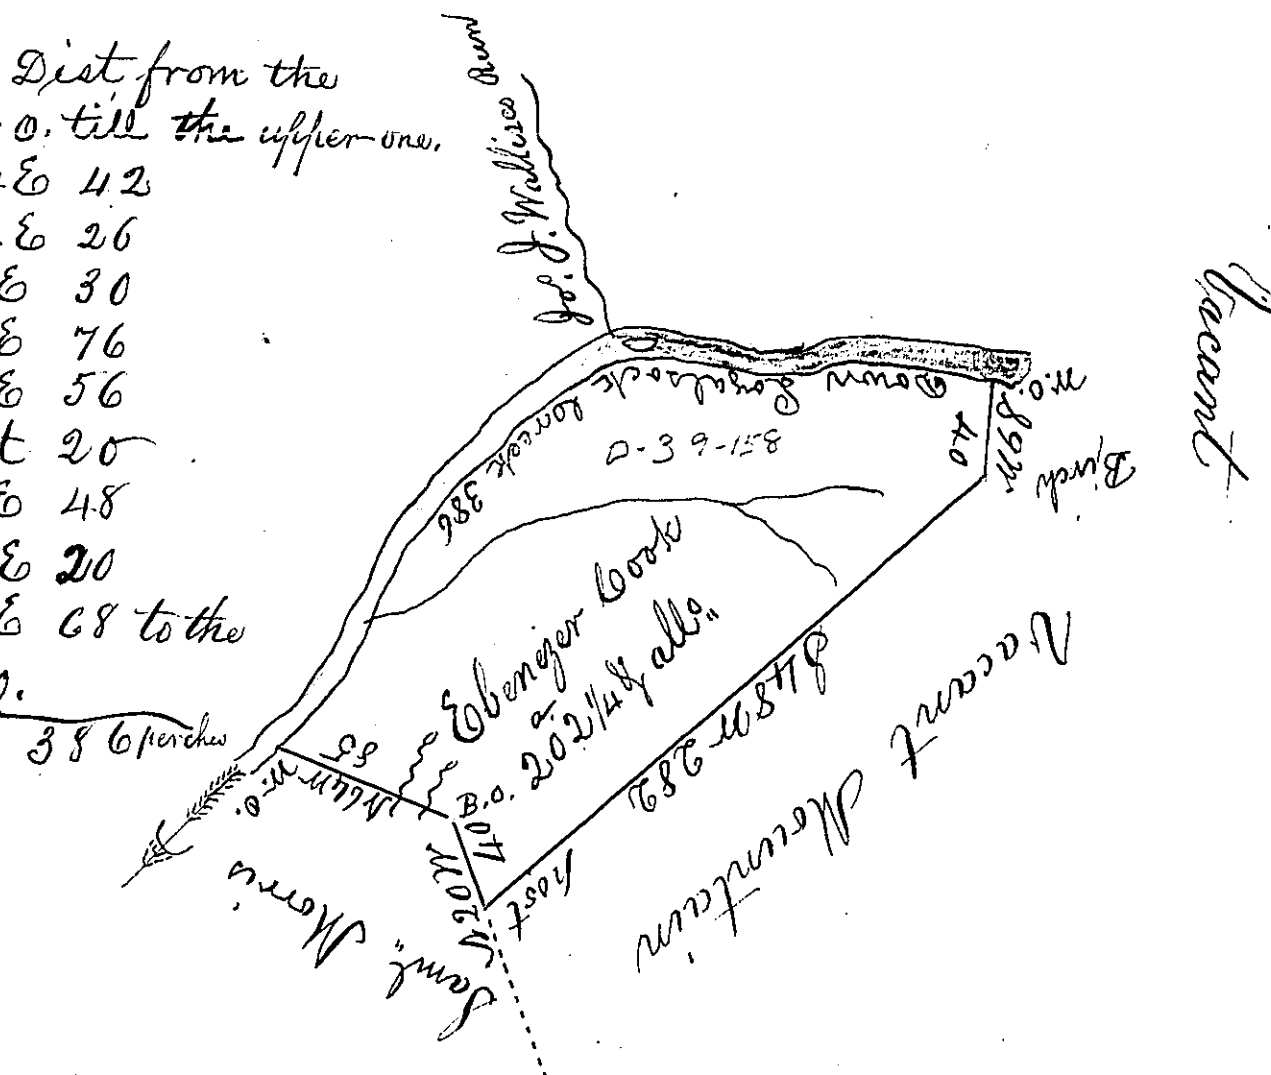 Dist. from the
o. till the upper one.
E 42
E 26
E 30
E 76
E 56
t 20
E 48
E 20
E 68 to the
386 perches
Jos. J. Wallises Run
Vacant
Down Loyalsock Creek 386
W.O.
S 9 W
40
Birch
D-39-158
Ebenezer Cook
a.
202 1/4 & all.
S 48 W 282
Vacant Mountain
85
N 64 W
W.O.
B.O.
40
N 20 W
Post
Saml. Morris